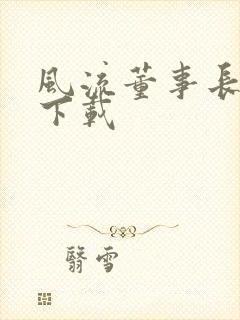 風流董事長
下載
翳雪